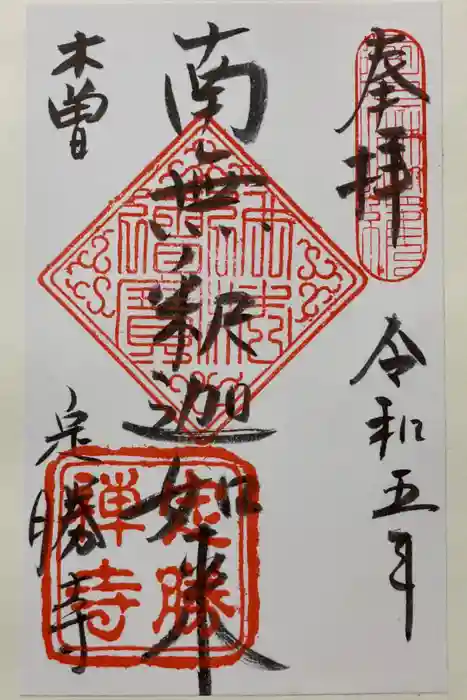 奉拝
令和五年
南無釈迦如来
木曽
定勝寺
定勝
禅寺